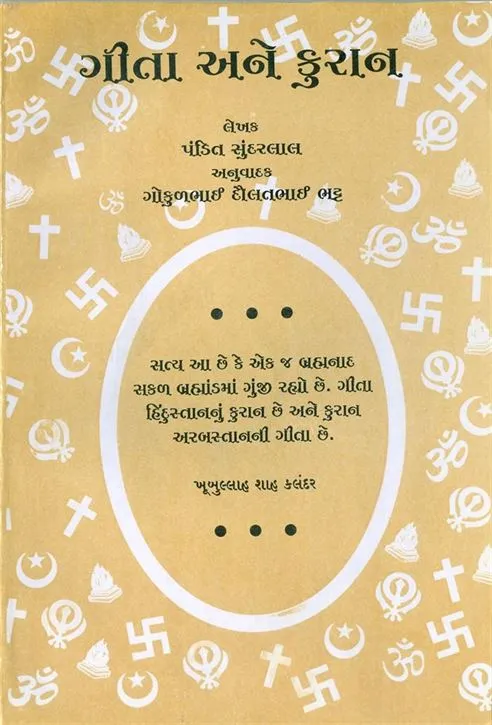 ગીતા અને કુરાન
લેખક
પંડિત સુંદરલાલ
અનુવાદક
ગોકુળભાઈ દૌલતભાઈ ભટ્ટ
સત્ય આ છે કે એક જ બ્રહ્મનાદ
સકળ બ્રહ્માંડમાં ગુંજી રહ્યો છે. ગીતા
હિંદુસ્તાનનું કુરાન છે અને કુરાન
અરબસ્તાનની ગીતા છે.
ખૂબુલ્લાહ શાહ કલંદર